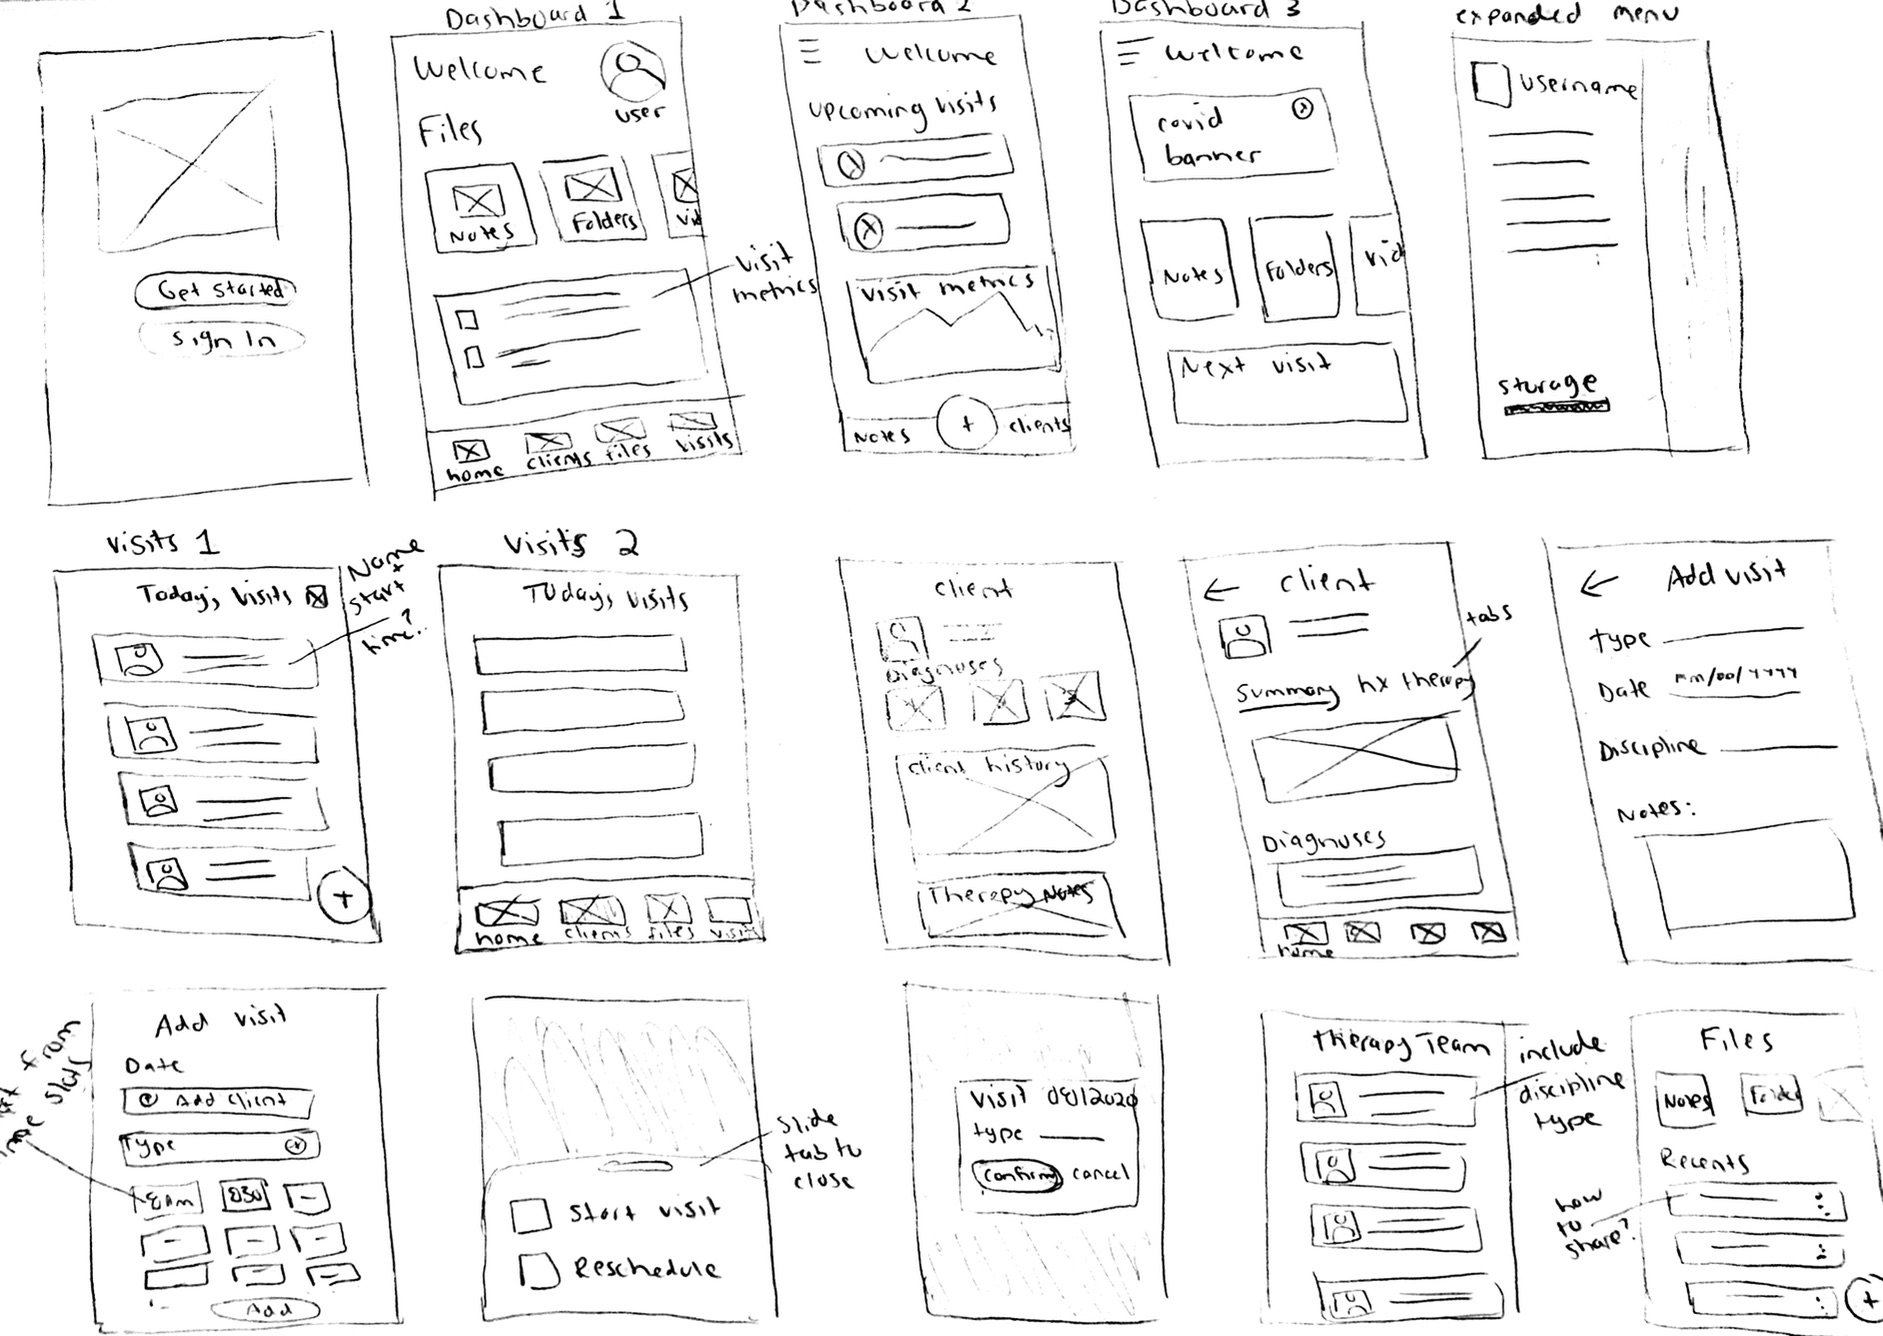 Dashboard 1
Dashboard 2
Dashboard 3
expanded menu
Get started
Sign In
Welcome
user
Files
Notes
Folders
Vid
visit
metrics
home
clients
files
visits
Welcome
upcoming visits
visit metrics
Notes
+
clients
Welcome
covid
banner
Notes
Folders
Vid
Next visit
username
storage
Visits 1
Today's Visits
Name
+
start
time?
+
Visits 2
Today's visits
home
clients
files
visit
client
Diagnoses
client history
Therapy Notes
client
tabs
Summary hx therapy
Diagnoses
home
Add visit
Type
Date mm/DD/YYYY
Discipline
Notes:
Add visit
Date
+ Add client
Type
8Am
830
Add
from
slots
slide
tab to
close
Start visit
Reschedule
Visit 08/2020
type
Confirm cancel
Therapy Team
include
discipline
type
Files
Notes
Folder
Recents
how
to
share?
+